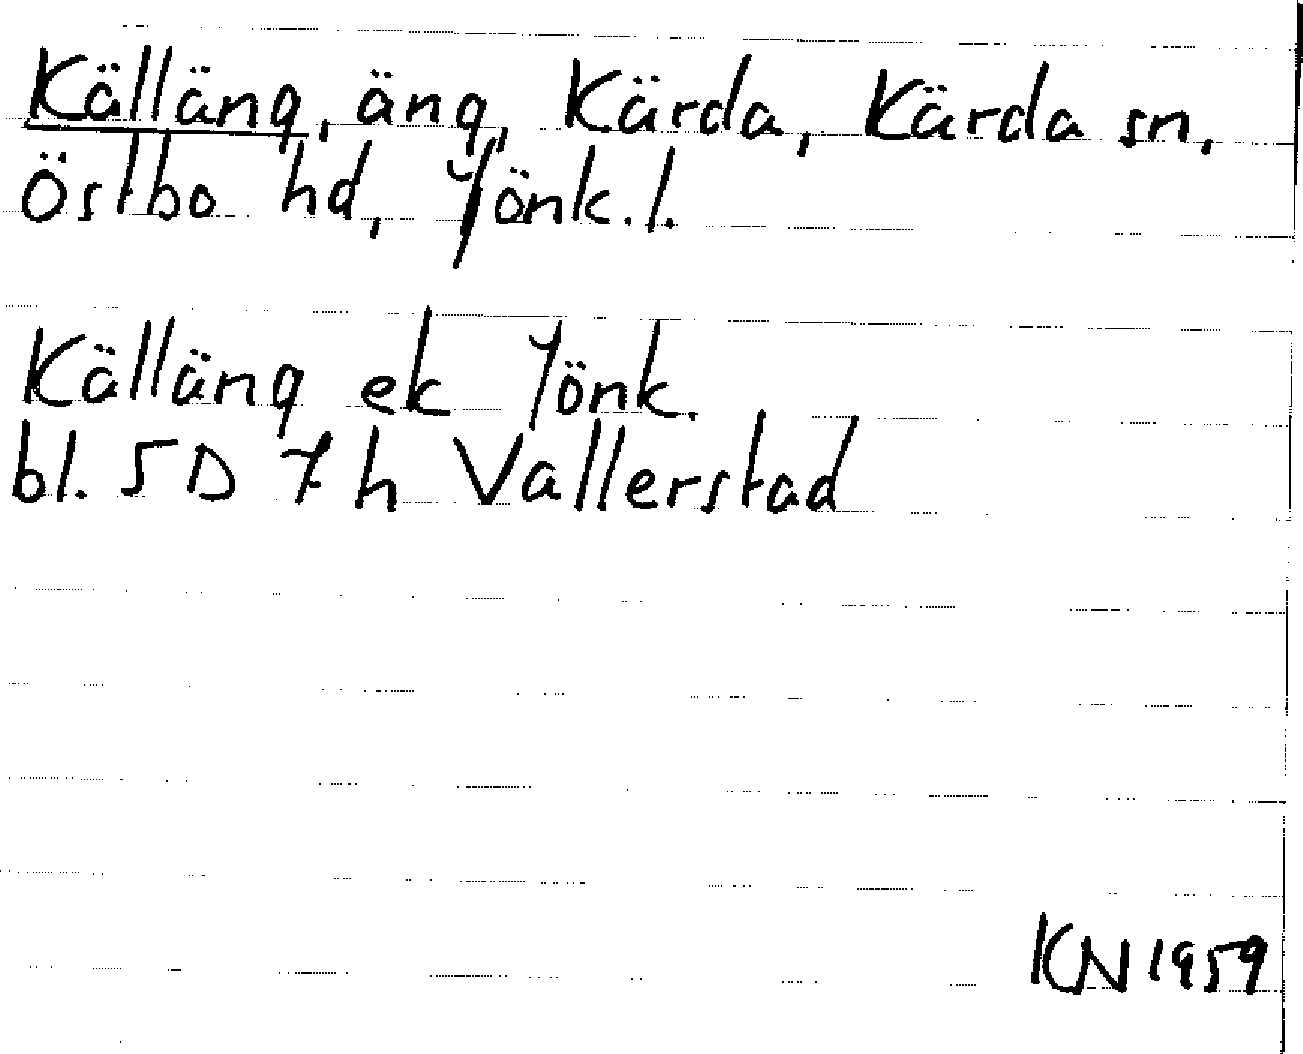 Källäng, äng, Kärda, Kärda sn,
Östbo hd, Jönk.l.
Källäng ek Jönk.
bl. 5D 7h Vallerstad
KN 1959